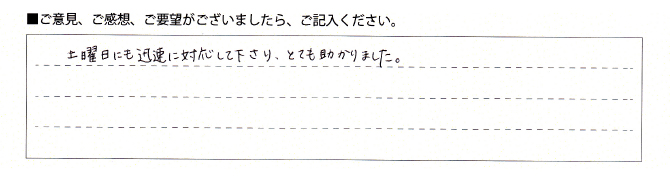 ■ご意見、ご感想、ご要望がございましたら、ご記入ください。
土曜日にも迅速に対応して下さり、とても助かりました。